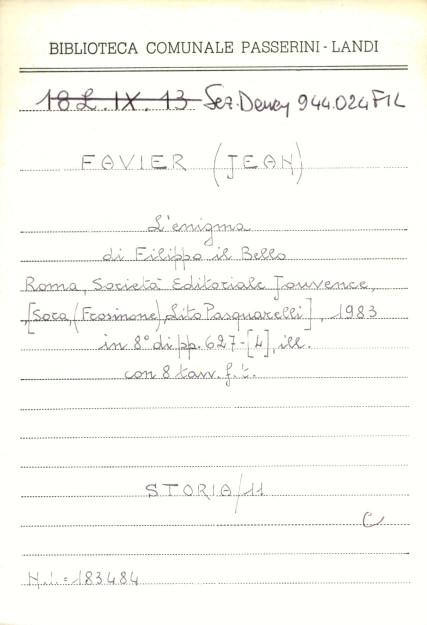 BIBLIOTECA COMUNALE PASSERINI - LANDI
18 L. IX. 13 Sez. Dewey 944.024 FIL
FAVIER (JEAN)
L'enigma
di Filippo il Bello
Roma, Società Editoriale Jouvence,
[Sora, (Frosinone), Lito Pasquarelli], 1983
in 8° di pp. 627-[4], ill.
con 8 tavv. f.t.
STORIA/11
C
N.i. = 183484